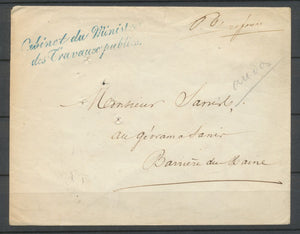 Cabinet du Ministre
des Travaux publics.
Monsieur Sanis
au géorama Sanis
Barrière du Maine